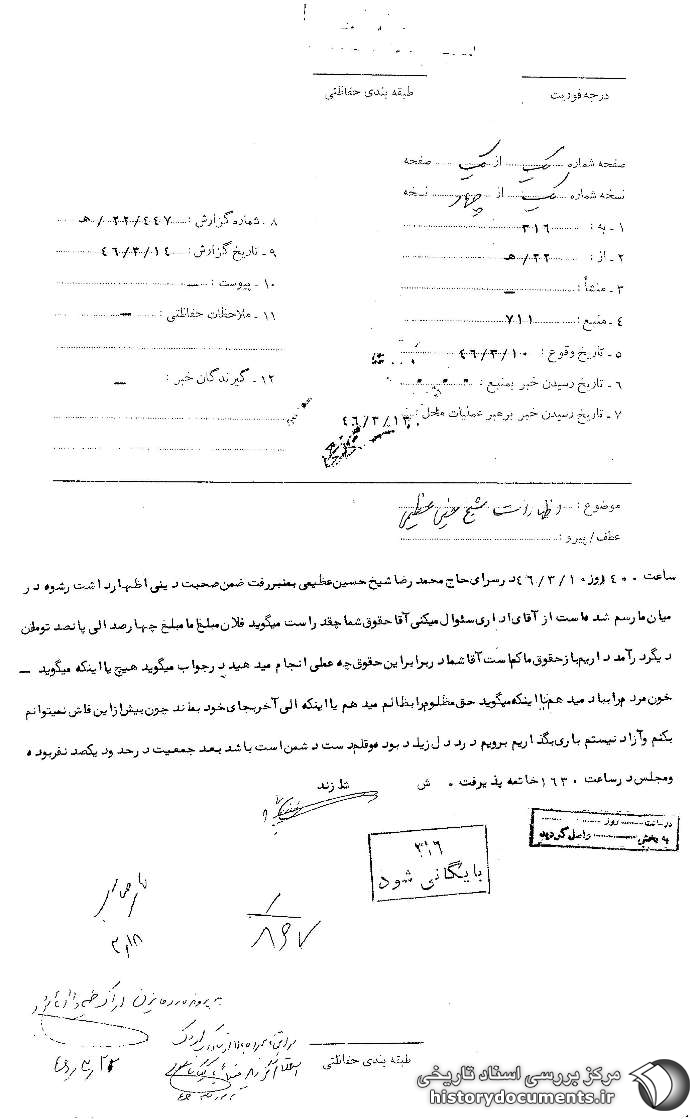 درجه فوریت
طبقه بندی حفاظتی
صفحه شماره یک از یک صفحه
نسخه شماره یک از چهار نسخه
۱ ـ به : ۳۱۶
۲ ـ از : ۲۲/ ه‍
۳ ـ منشأ : ــ
۴ ـ منبع : ۷۱۱
۵ ـ تاریخ وقوع : ۴۶/۳/۱۰
۶ ـ تاریخ رسیدن خبر بمنبع :
۷ ـ تاریخ رسیدن خبر برهبر عملیات محل : ۴۶/۳/۱۳
۸ ـ شماره گزارش : ۲۲/۴۴۷/ ه‍
۹ ـ تاریخ گزارش : ۴۶/۳/۱۴
۱۰ ـ پیوست : ــ
۱۱ ـ ملاحظات حفاظتی : ــ
۱۲ ـ گیرندگان خبر : ــ
موضوع : اظهارات شیخ حسین عظیمی
عطف / پیرو :
ساعت روز ۴۶/۳/۱۰ در سرای حاج محمد رضا شیخ حسین عظیمی بمنبر رفت ضمن صحبت دینی اظهار داشت رشوه در
میان ما رسم شده است از آقای اداری سئوال میکنی آقا حقوق شما چقدر است میگوید فلان مبلغ اما مبلغ چهارصد الی پانصد تومان
دیگر درآمد داریم باز حقوق ما کم است آقا شما در برابر این حقوق چه عملی انجام میدهید در جواب میگوید هیچ یا اینکه میگوید ــ
خون مردم را بباد میدهم یا اینکه میگوید حق مظلوم را بظالم میدهم یا اینکه الی آخر بجای خود بماند چون بیش از این فاش نمیتوانم
بکنم و آزاد نیستم باری بگذاریم برویم درد دل زیاد بود قلم دست دشمن است باشد بعد جمعیت در حدود یکصد نفر بوده
و مجلس در ساعت ۱۶۳۰ خاتمه پذیرفت . ش شازند
در ساعت روز
به بخش واصل گردید
۳۱۶
بایگانی شود
۳/۱۸
۸۹۷
طبقه بندی حفاظتی
مرکز بررسی اسناد تاریخی
historydocuments.ir